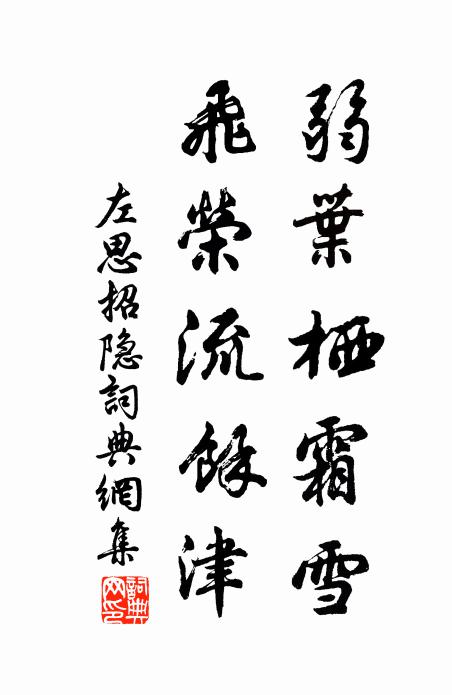 弱葉栖霜雪
飛榮流餘津
左思招隐詞典網集
詞典网印